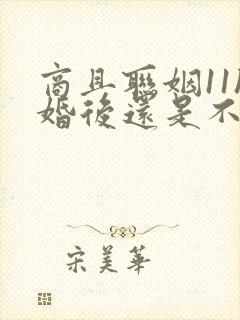 商且聯姻11
婚後還是不
宋美華